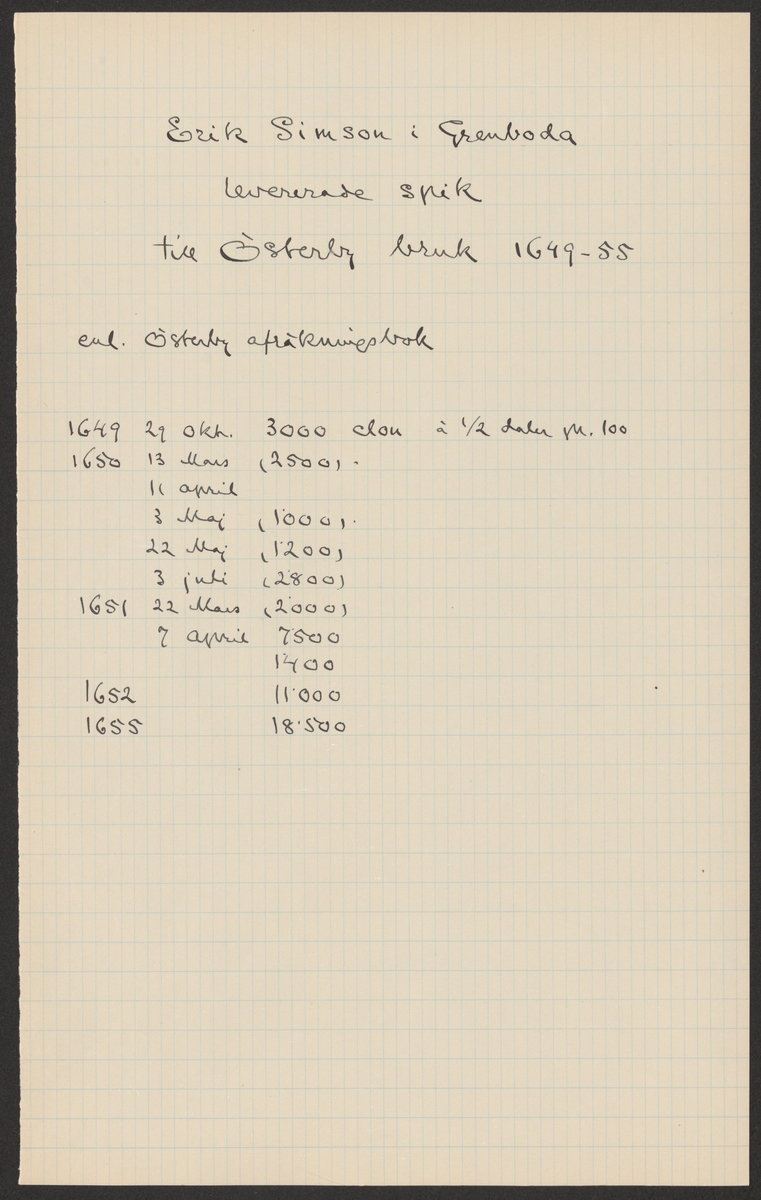 Erik Simson i Grenboda
levererade spik
till Österby bruk 1649-55
enl. Österby afräkningsbok
1649 29 okt. 3000 clou à 1/2 daler pr. 100
1650 13 Mars (2500).
11 april
3 Maj (1000).
22 Maj (1200)
3 juli (2800)
1651 22 Mars (2000)
7 april 7500
1400
1652 11000
1655 18500